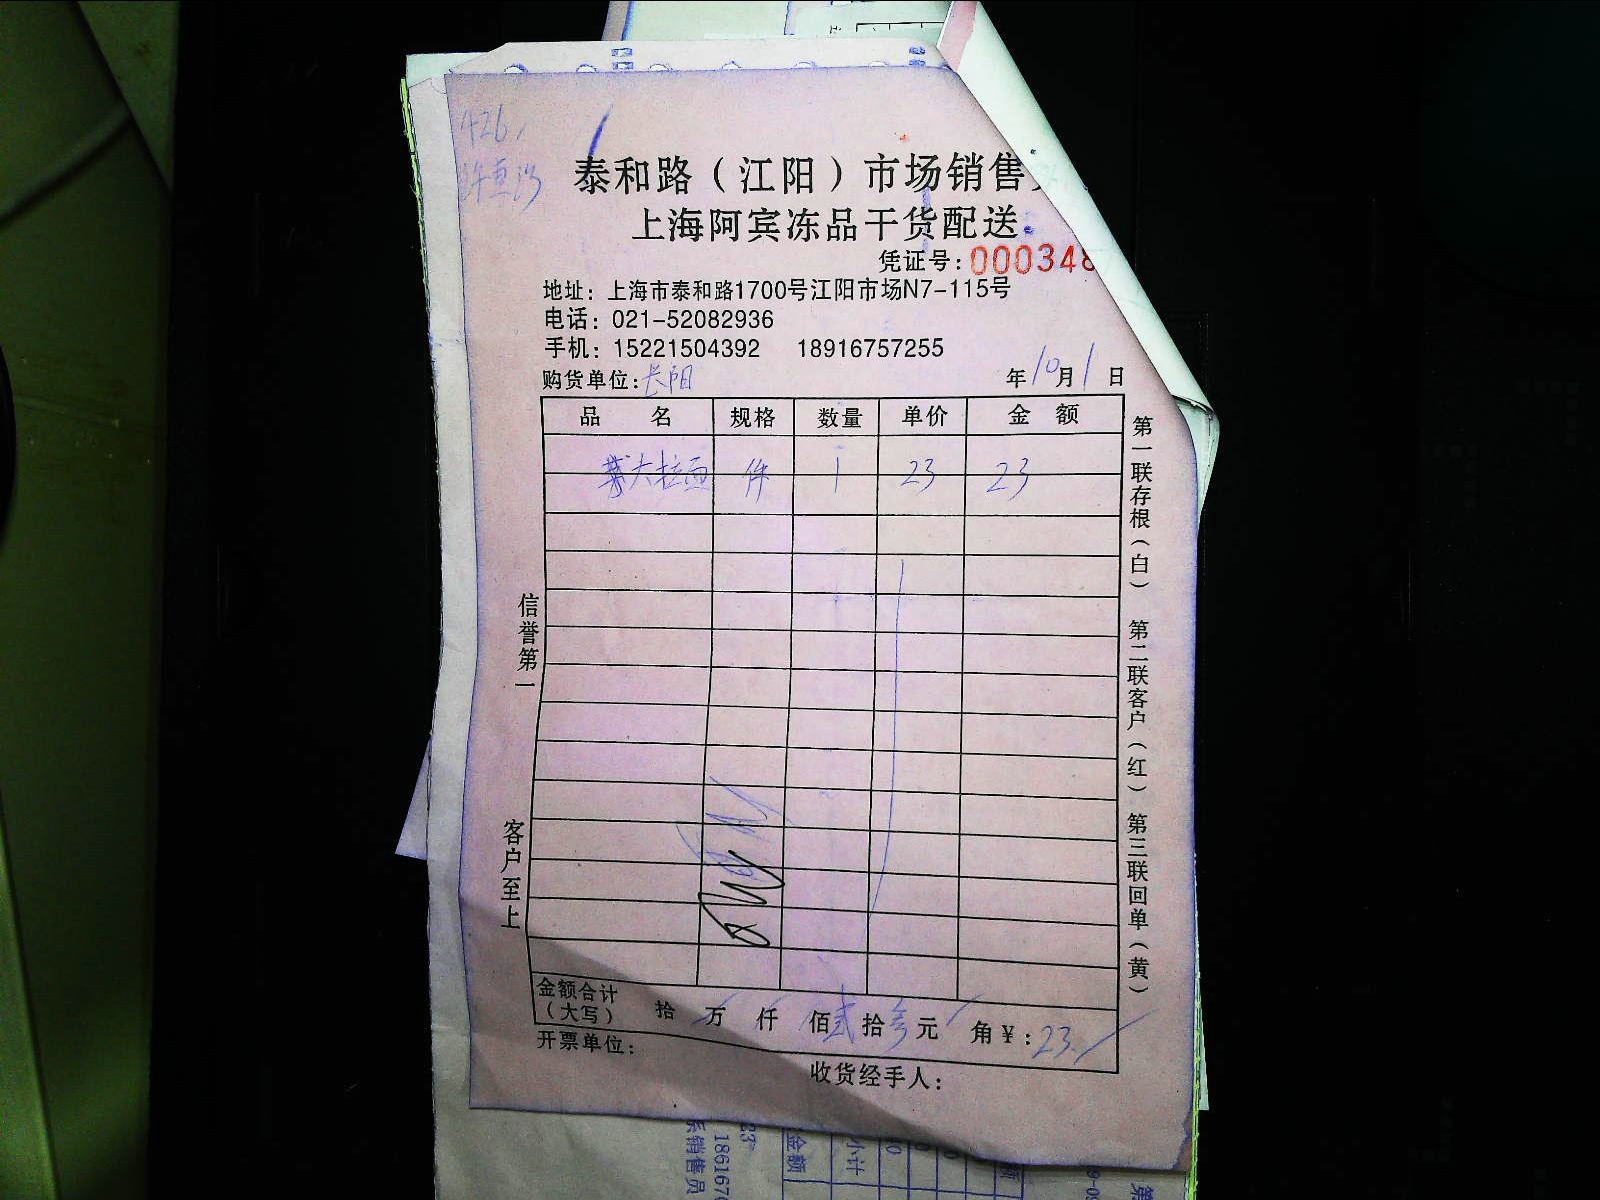 426
泰和路（江阳）市场销售
上海阿宾冻品干货配送
凭证号：000348
地址：上海市泰和路1700号江阳市场N7-115号
电话：021-52082936
手机：15221504392 18916757255
购货单位：长阳 年10月1日
品 名 规格 数量 单价 金 额
大拉面 件 1 23 23
信誉第一
客户至上
第一联存根（白） 第二联客户（红） 第三联回单（黄）
金额合计（大写） 拾 万 仟 佰贰拾叁元 角￥：23.
开票单位：
收货经手人：
金额
小计
系销售员